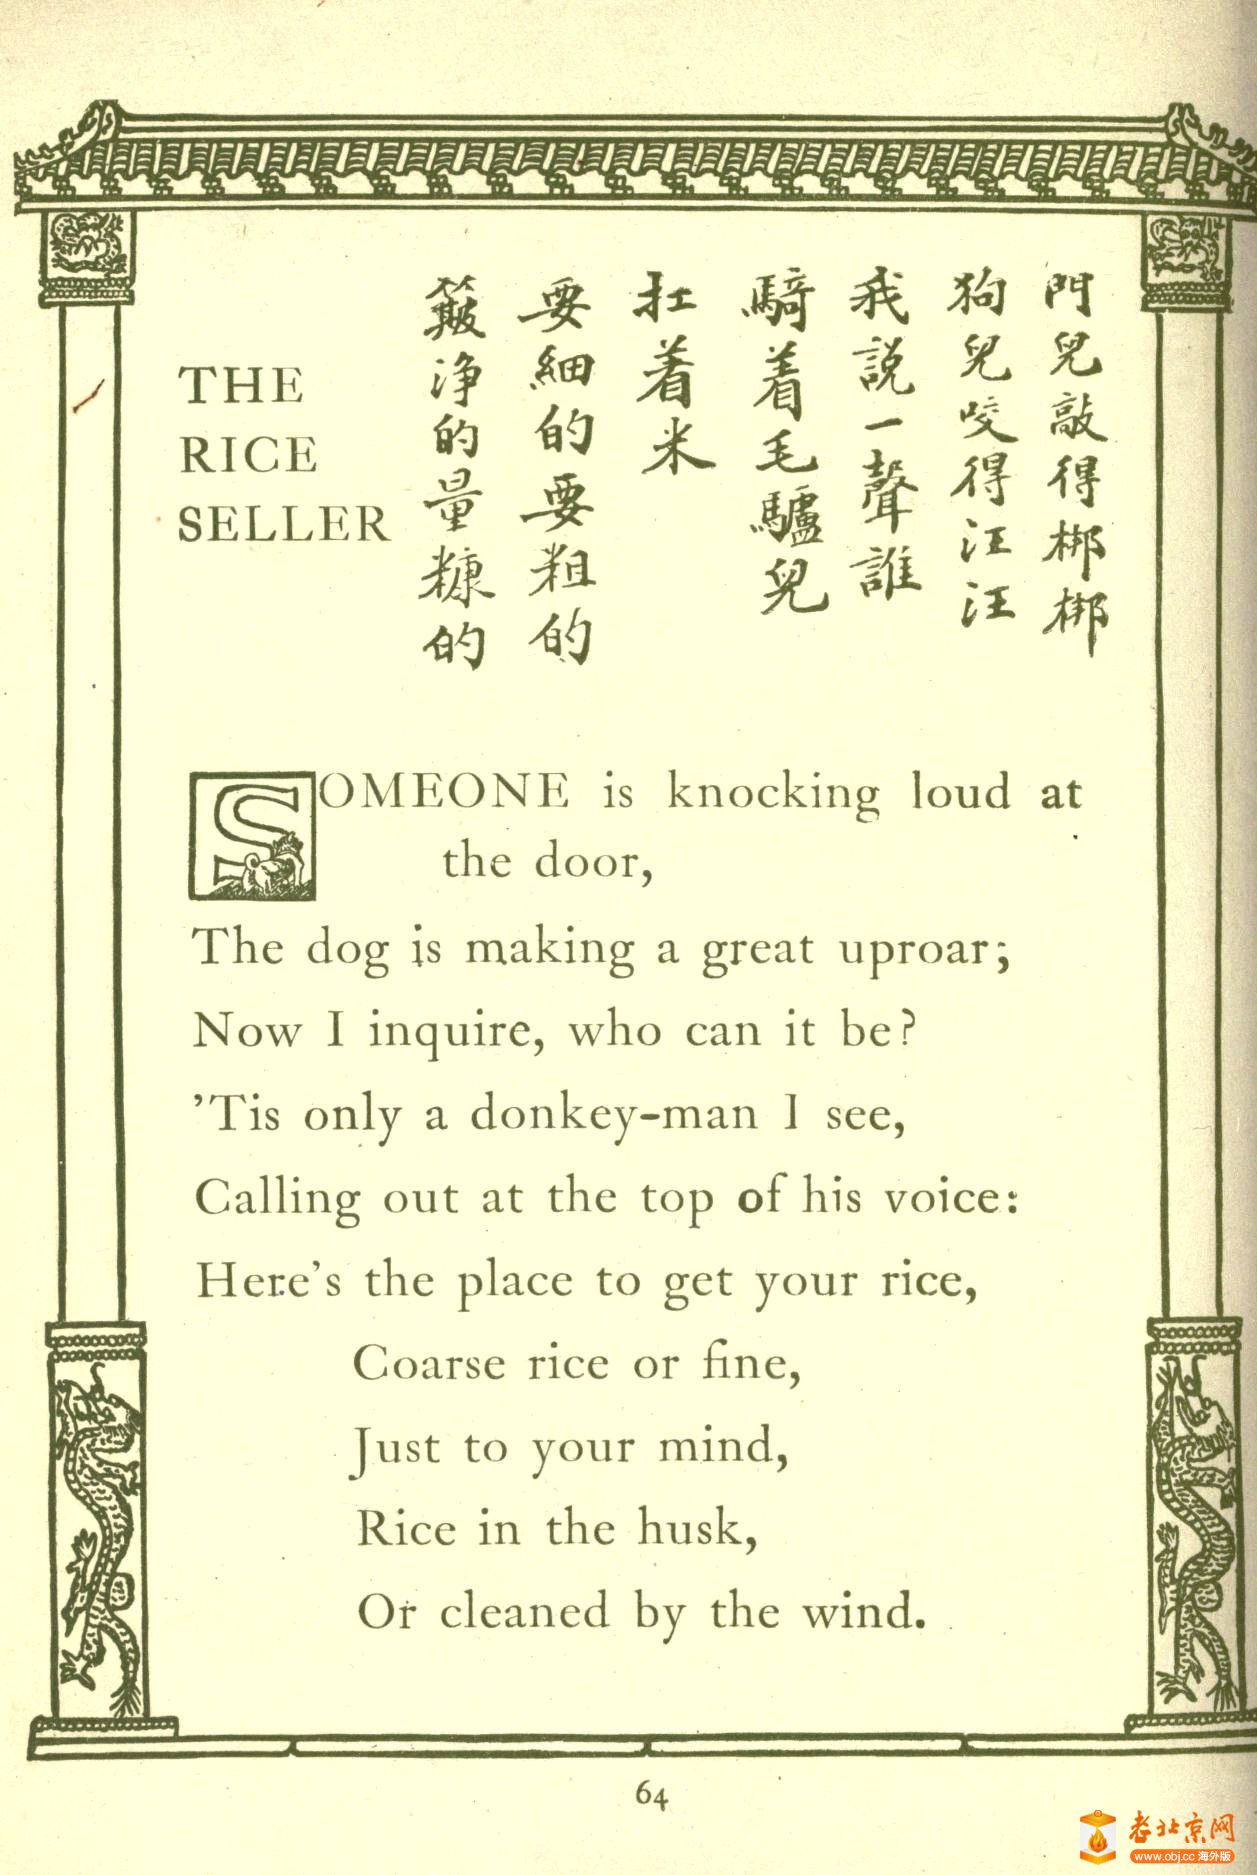 門兒敲得梆梆
狗兒咬得汪汪
我説一聲誰
騎着毛驢兒
扛着米
要細的要粗的
簸净的量糠的
THE
RICE
SELLER
SOMEONE is knocking loud at
the door,
The dog is making a great uproar;
Now I inquire, who can it be?
'Tis only a donkey-man I see,
Calling out at the top of his voice:
Here's the place to get your rice,
Coarse rice or fine,
Just to your mind,
Rice in the husk,
Or cleaned by the wind.
64
老北京网
www.obj.cc 海外版